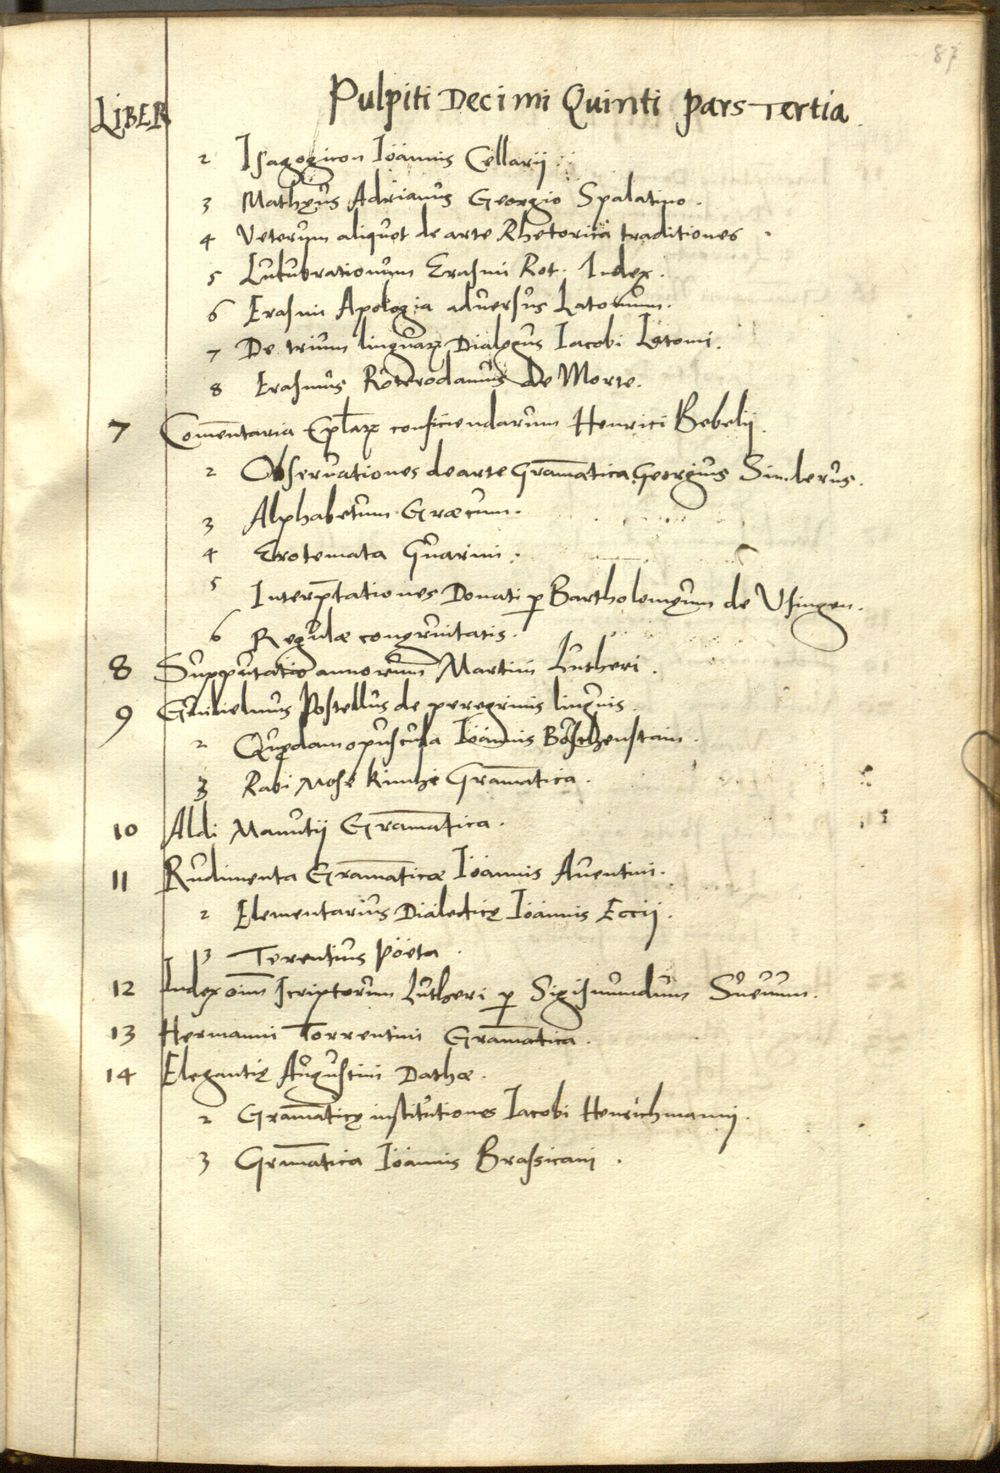 87
LIBER Pulpiti Decimi Quinti pars Tertia
2 Isagogicon Ioannis Cellarij.
3 Mathęus Adrianus Georgio Spalatino.
4 Veterum aliquot de arte Rhetorica traditiones.
5 Lucubrationum Erasmi Rot. Index.
6 Erasmi Apologia adversus Latomum.
7 De trium linguaꝝ Dialogus Iacobi Latomi.
8 Erasmus Roterodamus de Morte.
7 Com̄entaria Ep̄laꝝ conficiendarum Henrici Bebelij.
2 Observationes de arte Gram̄atica Georgius Simlerus.
3 Alphabetum Græcum.
4 Erotemata Guarini.
5 Interp̄tationes Donati ꝑ Bartholomęum de Vsingen.
6 Regulæ congruitatis.
8 Supputatio annorum Martini Lutheri.
9 Guilielmus Postellus de peregrinis linguis.
2 Quędam opuscula Ioannis Böschenstain.
3 Rabi Mose kimhi Gram̄atica.
10 Aldi Manutij Gram̄atica.
11 Rudimenta Gram̄aticæ Ioannis Auentini.
2 Elementarius Dialecticę Ioannis Eccij.
3 Terentius pöeta.
12 Index oim̄ scriptorum Lutheri ꝑ Sigismundum Sueuum.
13 Hermanni Torrentini Gram̄atica.
14 Elegantię Augustini Dathæ.
2 Gram̄aticę institutiones Iacobi Henrichmanni.
3 Grm̄atica Ioannis Brassicani.